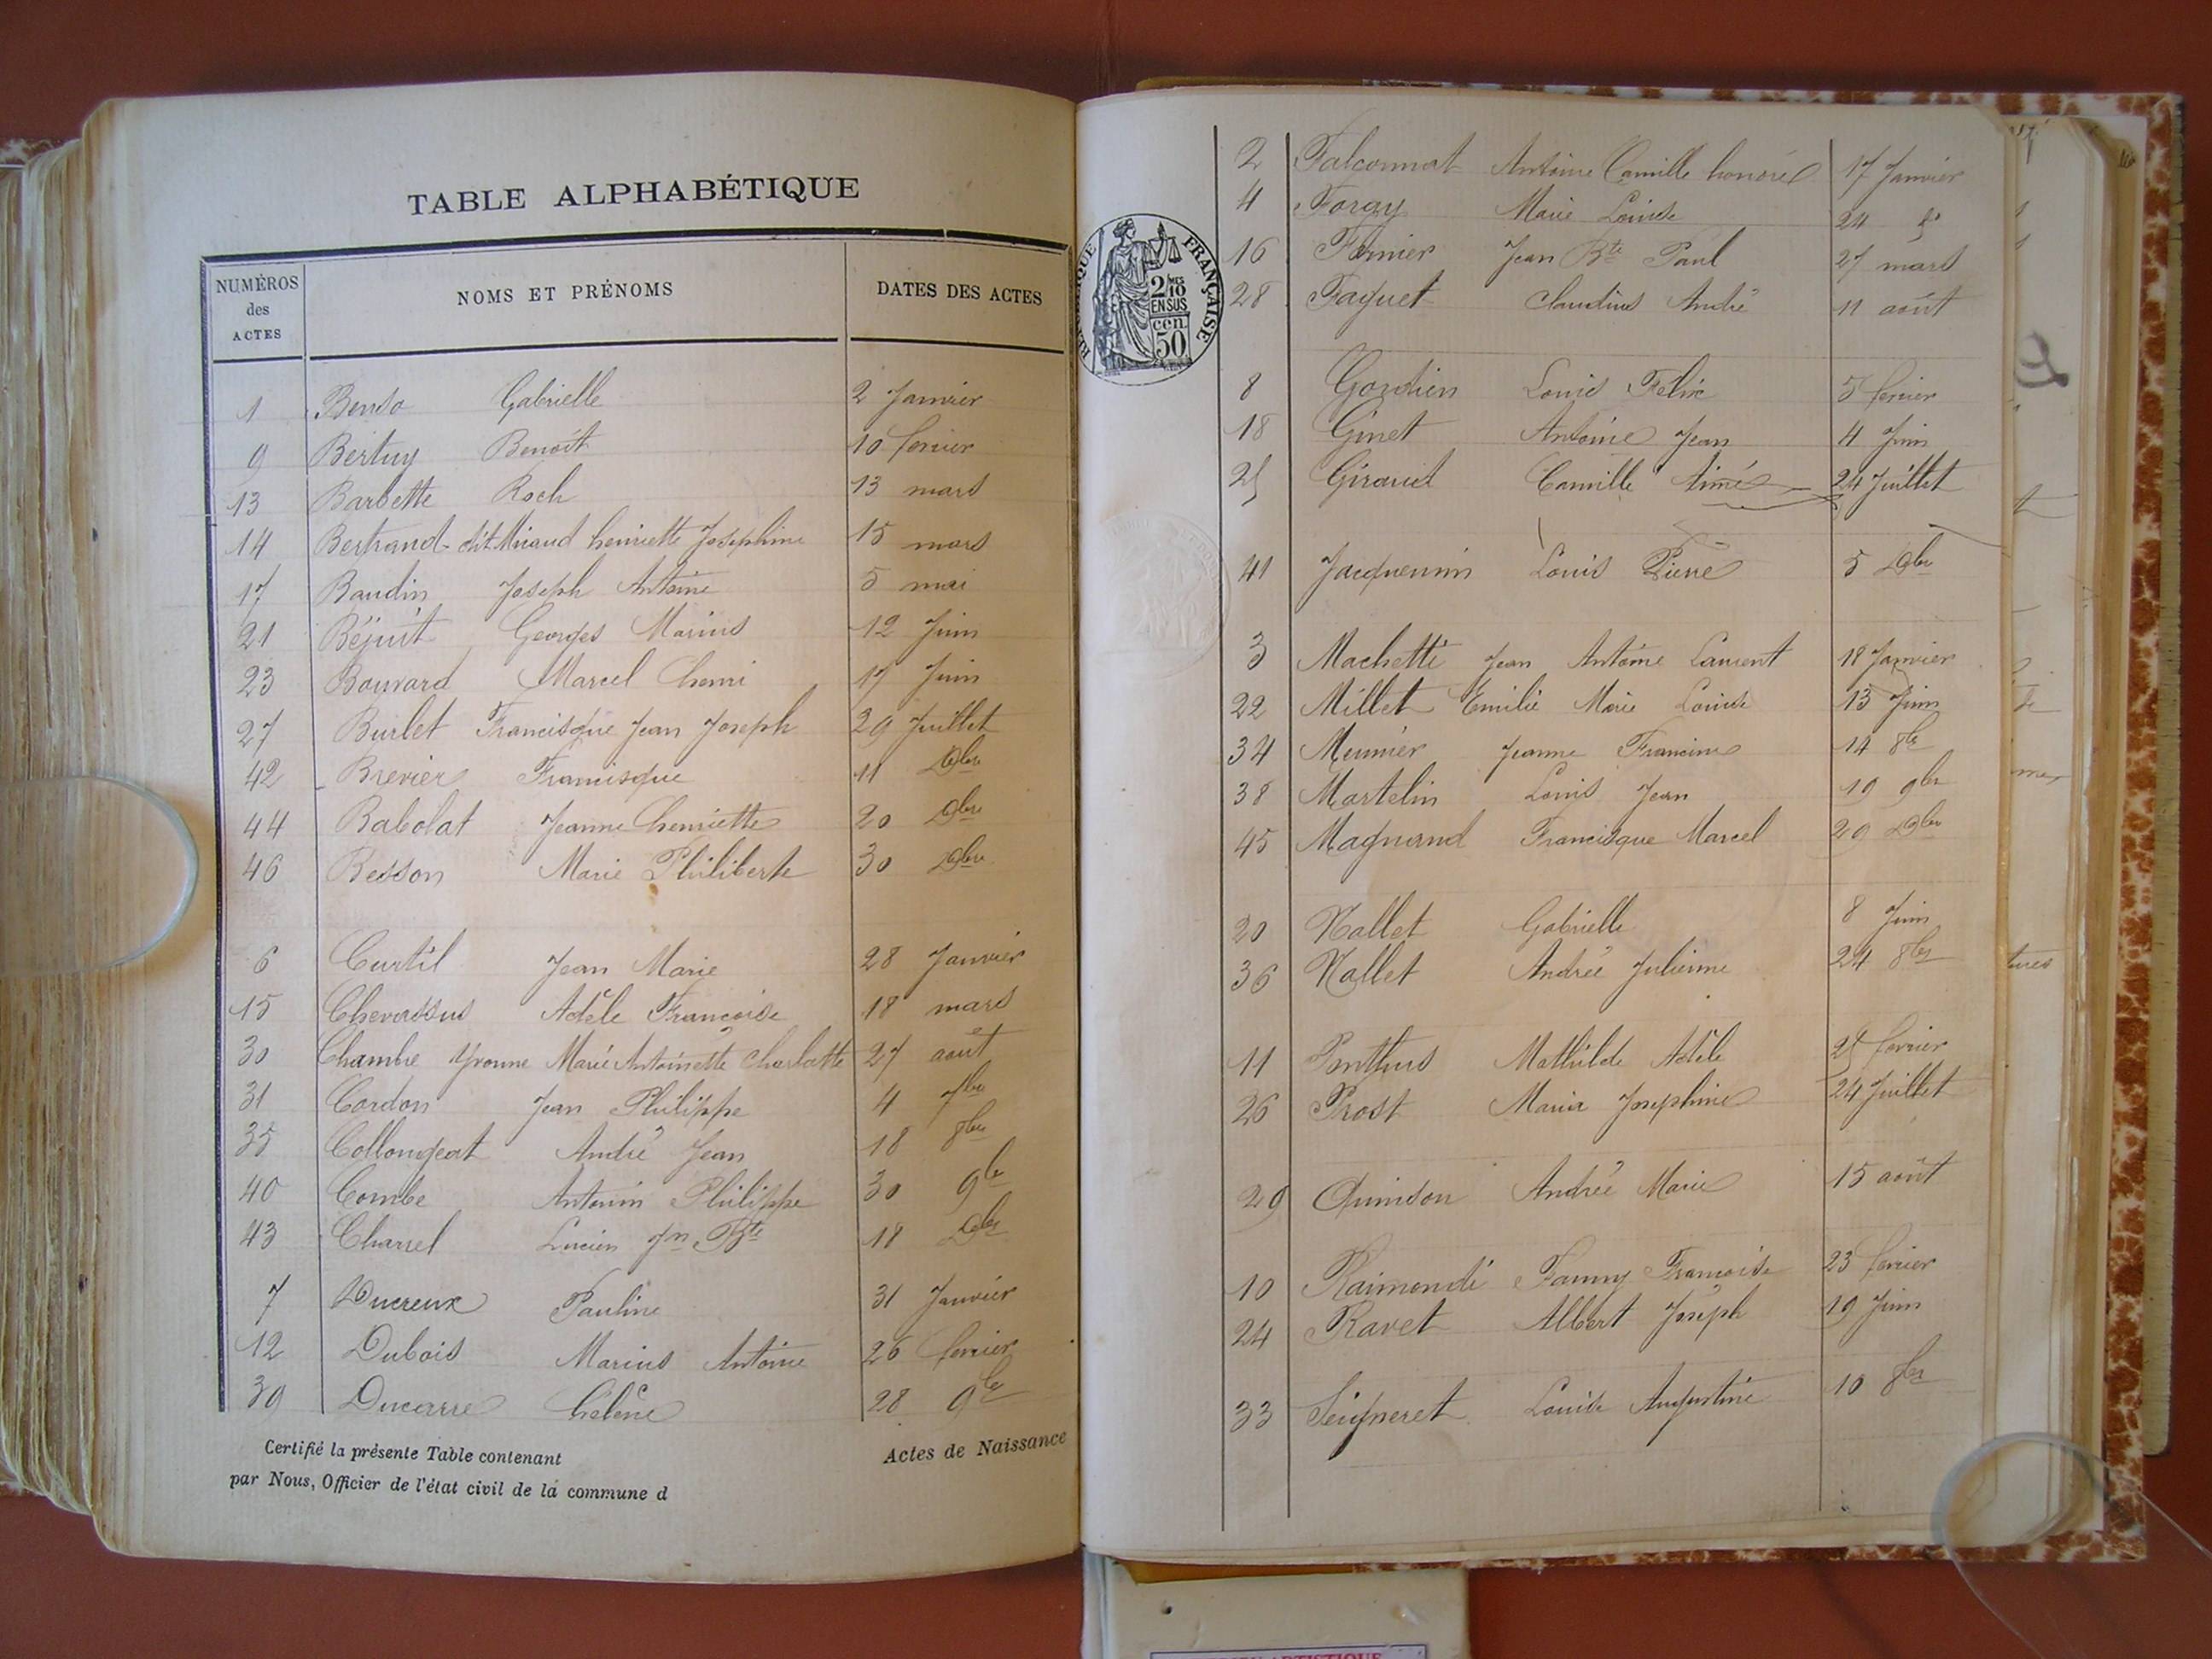 TABLE ALPHABÉTIQUE
NUMÉROS des ACTES NOMS ET PRÉNOMS DATES DES ACTES
1 Benso Gabrielle 2 Janvier
9 Bertuy Benoît 10 fevrier
13 Barbette Roch 13 mars
14 Bertrand dit Miraud henriette Josephine 15 mars
17 Baudin Joseph Antoine 5 mai
21 Béjuit Georges Marius 12 Juin
23 Bouvard Marcel henri 17 Juin
27 Burlet Francisque Jean Joseph 29 Juillet
42 Brevier Francisque 11 Dbre
44 Babolat Jeanne henriette 20 Dbre
46 Besson Marie Philiberte 30 Dbre
6 Curtil Jean Marie 28 Janvier
15 Chevassus Adèle Francoise 18 mars
30 Chambre Yvonne Marie Antoinette Charlotte 27 août
31 Cordon Jean Philippe 4 7bre
35 Collongeat André Jean 18 8bre
40 Combe Antonin Philippe 30 9b
43 Charrel Lucien Jn Bte 18 Dbre
7 Ducreux Pauline 31 Janvier
12 Dubois Marius Antoine 26 fevrier
39 Ducarre hélène 28 9b
Certifié la présente Table contenant Actes de Naissance
par Nous, Officier de l'état civil de la commune d
RÉPUBLIQUE FRANÇAISE
2 MES 10 EN SUS
50 cen
2 Falconnat Antoine Camille honoré 17 Janvier
4 Forgy Marie Louise 24 do
16 Fournier Jean Bte Paul 27 mars
28 Faguet Claudius André 11 août
8 Gordien Louis Felix 5 fevrier
18 Ginet Antoine Jean 4 Juin
25 Giraud Camille Aimé 24 Juillet
41 Jacquemin Louis Pierre 5 Dbre
3 Machetti Jean Antoine Laurent 18 Janvier
22 Millet Emilie Marie Louise 13 Juin
34 Meunier Jeanne Francine 14 8b
38 Martelin Louis Jean 19 9br
45 Magnand Francisque Marcel 29 Dbre
20 Nallet Gabrielle 8 Juin
36 Nallet Andrée Julienne 24 8br
11 Ponthus Mathilde Adèle 25 fevrier
26 Prost Maria Josephine 24 Juillet
29 Quinson Andrée Marie 15 août
10 Raimondi Fanny Francoise 23 fevrier
24 Ravet Albert Joseph 19 Juin
33 Seigneret Louise Augustine 10 8br